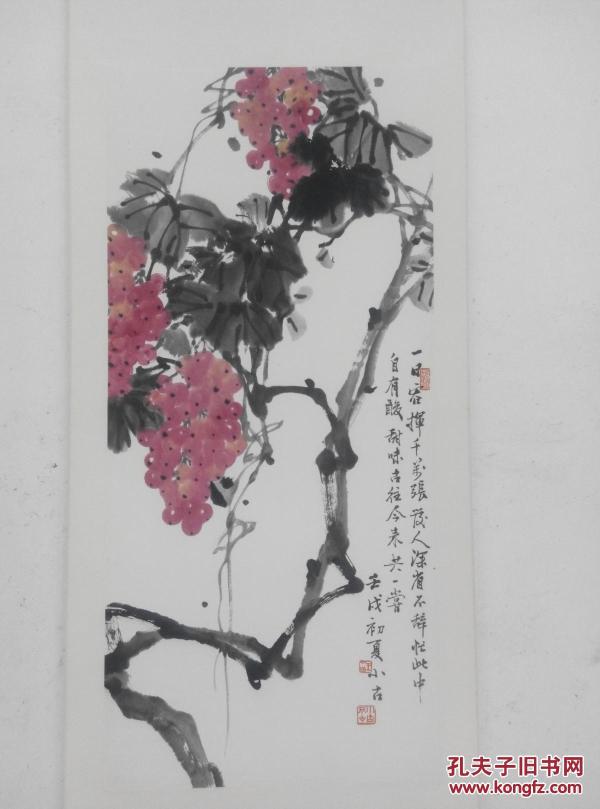 一日容揮千万張發人深省不辭忙此中
自有酸甜味古往今來共一嘗
壬戌初夏小古
孔夫子旧书网
www.kongfz.com